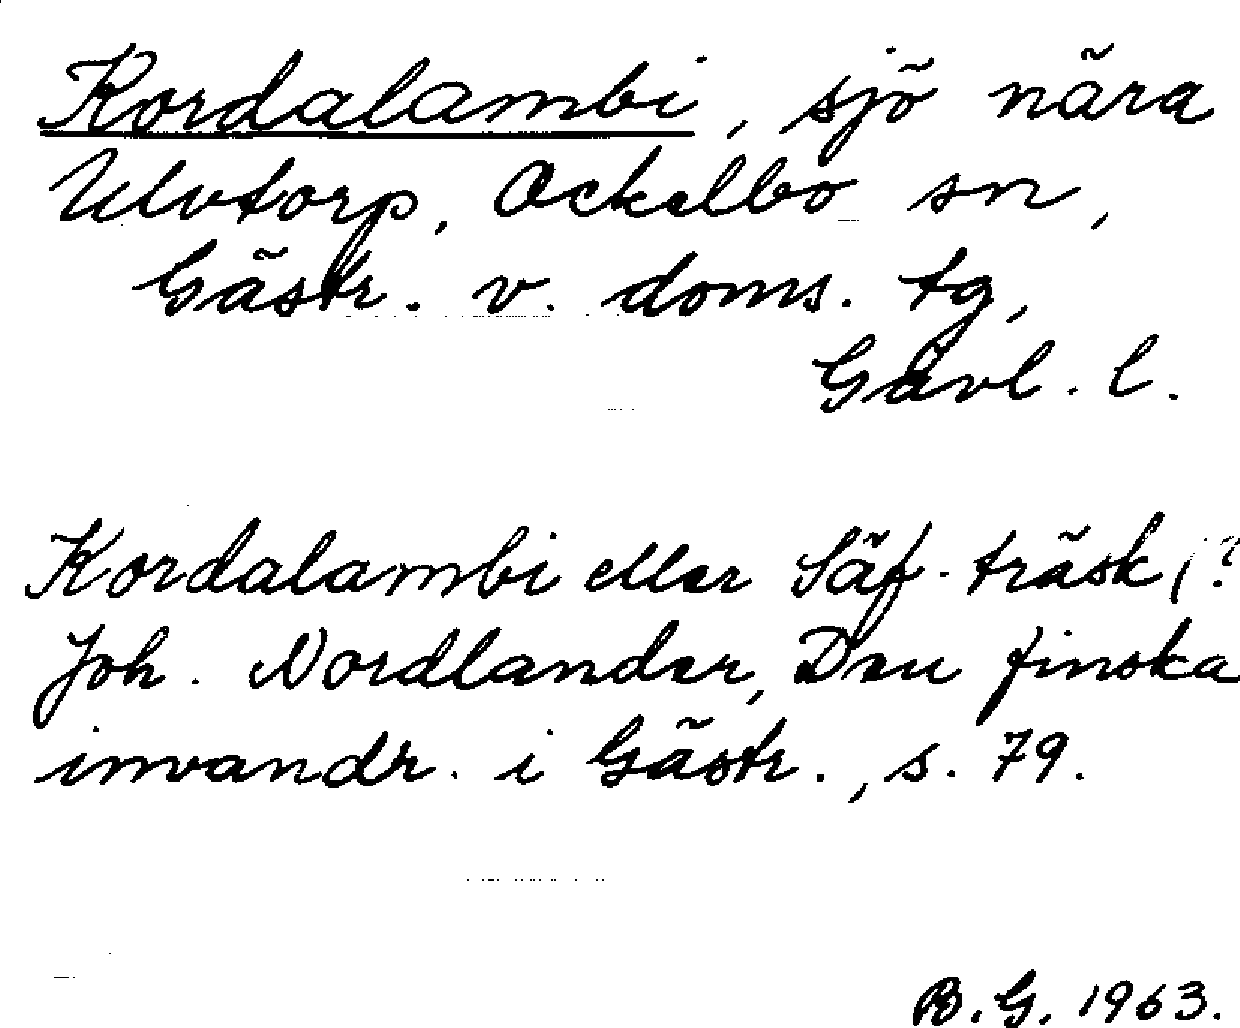 Kordalambi, sjö nära
Ulvtorp, Ockelbo sn,
Gästr. v. doms. tg,
Gävl. l.
Kordalambi eller Säf-träsk (?
Joh. Nordlander, Den finska
invandr. i Gästr., s. 79.
B.G. 1963.